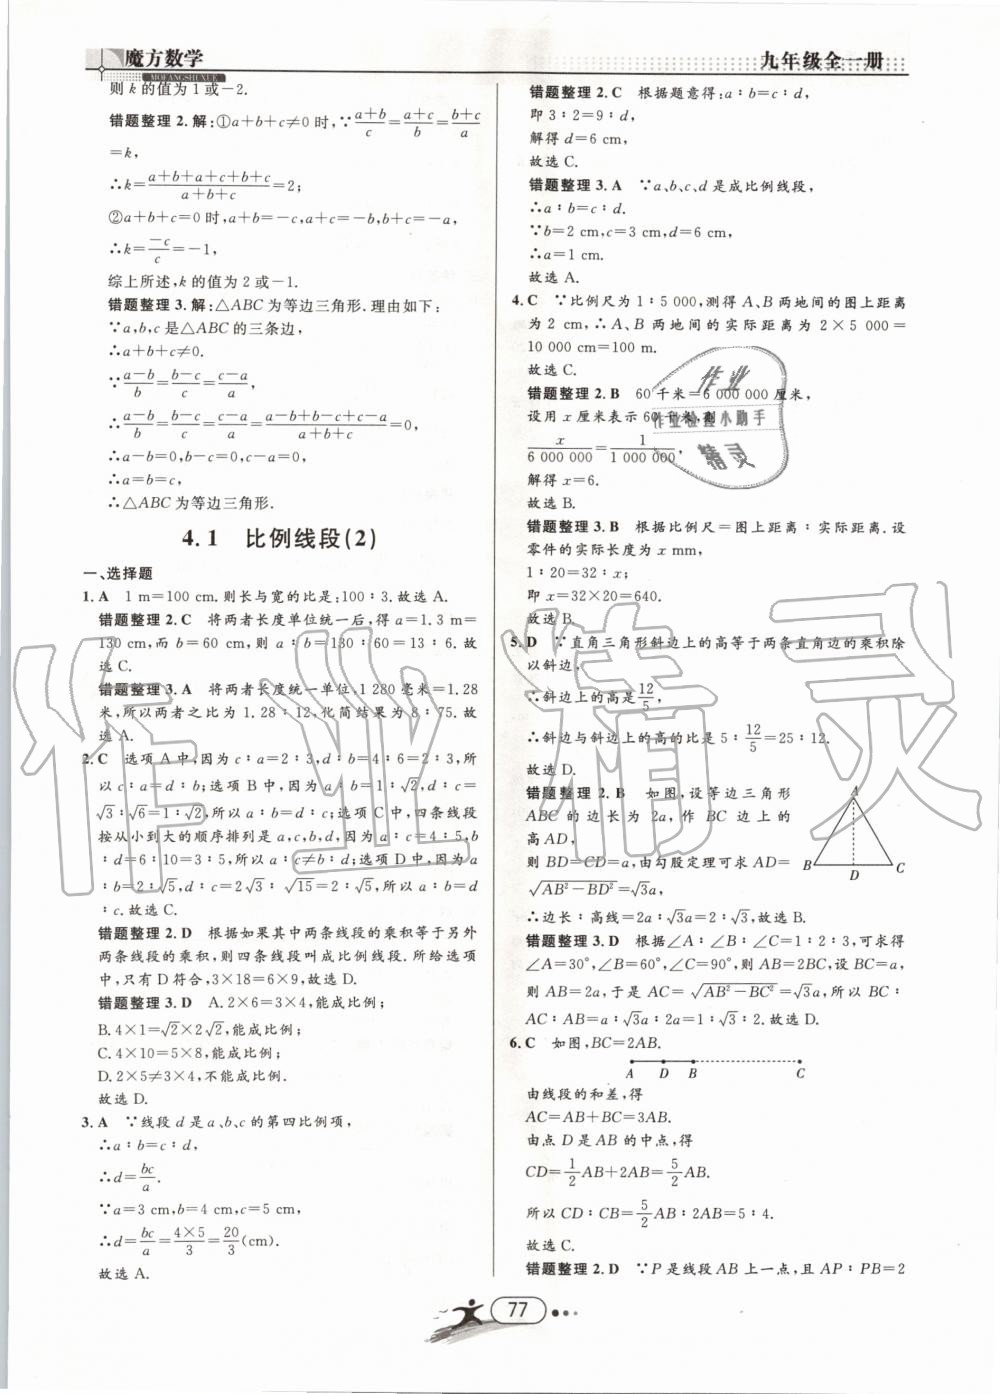 魔方数学
MOFANGSHUXUE
九年级全一册
则 k 的值为 1 或-2.
错题整理 2. 解:①a+b+c≠0 时,∵(a+b)/c=(a+c)/b=(b+c)/a
=k,
∴k=(a+b+a+c+b+c)/(a+b+c)=2;
②a+b+c=0 时,a+b=-c,a+c=-b,b+c=-a,
∴k=-c/c=-1,
综上所述,k 的值为 2 或-1.
错题整理 3. 解:△ABC 为等边三角形. 理由如下:
∵a,b,c 是△ABC 的三条边,
∴a+b+c≠0.
∵(a-b)/b=(b-c)/c=(c-a)/a,
∴(a-b)/b=(b-c)/c=(c-a)/a=(a-b+b-c+c-a)/(a+b+c)=0,
∴a-b=0,b-c=0,c-a=0,
∴a=b=c,
∴△ABC 为等边三角形.
4.1 比例线段(2)
一、选择题
1. A 1 m=100 cm. 则长与宽的比是:100∶3. 故选 A.
错题整理 2. C 将两者长度单位统一后,得 a=1.3 m=
130 cm,而 b=60 cm,则 a∶b=130∶60=13∶6. 故
选 C.
错题整理 3. A 将两者长度统一单位,1 280 毫米=1.28
米,所以两者之比为 1.28∶12,化简结果为 8∶75. 故
选 A.
2. C 选项 A 中,因为 c∶a=2∶3,d∶b=4∶6=2∶3,所
以 c∶a=d∶b;选项 B 中,因为 a∶b=1∶√2,d∶c=
√3∶√6=1∶√2,所以 a∶b=d∶c;选项 C 中,四条线段
按从小到大的顺序排列是 a,c,b,d,因为 a∶c=4∶5,b
∶d=6∶10=3∶5,所以 a∶c≠b∶d;选项 D 中,因为 a
∶b=2∶√5,d∶c=2√3∶√15=2∶√5,所以 a∶b=d
∶c. 故选 C.
错题整理 2. D 根据如果其中两条线段的乘积等于另外
两条线段的乘积,则四条线段叫成比例线段. 所给选项
中,只有 D 符合,3×18=6×9,故选 D.
错题整理 3. D A. 2×6=3×4,能成比例;
B. 4×1=√2×2√2,能成比例;
C. 4×10=5×8,能成比例;
D. 2×5≠3×4,不能成比例.
故选 D.
3. A ∵线段 d 是 a、b、c 的第四比例项,
∴a∶b=c∶d,
∴d=bc/a.
∵a=3 cm,b=4 cm,c=5 cm,
∴d=bc/a=(4×5)/3=20/3(cm).
故选 A.
错题整理 2. C 根据题意得:a∶b=c∶d,
即 3∶2=9∶d,
解得 d=6 cm,
故选 C.
错题整理 3. A ∵a、b、c、d 是成比例线段,
∴a∶b=c∶d.
∵b=2 cm,c=3 cm,d=6 cm,
∴a=1 cm.
故选 A.
4. C ∵比例尺为 1∶5 000,测得 A、B 两地间的图上距离
为 2 cm,∴A、B 两地间的实际距离为 2×5 000=
10 000 cm=100 m.
故选 C.
错题整理 2. B 60 千米=6 000 000 厘米,
设用 x 厘米表示 60 千米,则
x/6 000 000=1/1 000 000,
解得 x=6.
故选 B.
错题整理 3. B 根据比例尺=图上距离∶实际距离. 设
零件的实际长度为 x mm,
1∶20=32∶x;
即 x=32×20=640.
故选 B.
5. D ∵直角三角形斜边上的高等于两条直角边的乘积除
以斜边,
∴斜边上的高是12/5,
∴斜边与斜边上的高的比是 5∶12/5=25∶12.
故选 D.
错题整理 2. B 如图,设等边三角形
ABC 的边长为 2a,作 BC 边上的
高 AD,
则 BD=CD=a,由勾股定理可求 AD=
√(AB²-BD²)=√3a,
∴边长∶高线=2a∶√3a=2∶√3,故选 B.
A
B
D
C
错题整理 3. D 根据∠A∶∠B∶∠C=1∶2∶3,可求得
∠A=30°,∠B=60°,∠C=90°,则 AB=2BC,设 BC=a,
则 AB=2a,于是 AC=√(AB²-BC²)=√3a,所以 BC∶
AC∶AB=a∶√3a∶2a=1∶√3∶2. 故选 D.
6. C 如图,BC=2AB.
A D B C
由线段的和差,得
AC=AB+BC=3AB.
由点 D 是 AB 的中点,得
CD=1/2AB+2AB=5/2AB.
所以 CD∶CB=5/2AB∶2AB=5∶4.
故选 C.
错题整理 2. D ∵P 是线段 AB 上一点,且 AP∶PB=2
77
作业
作业检查小助手
精灵
作业精灵